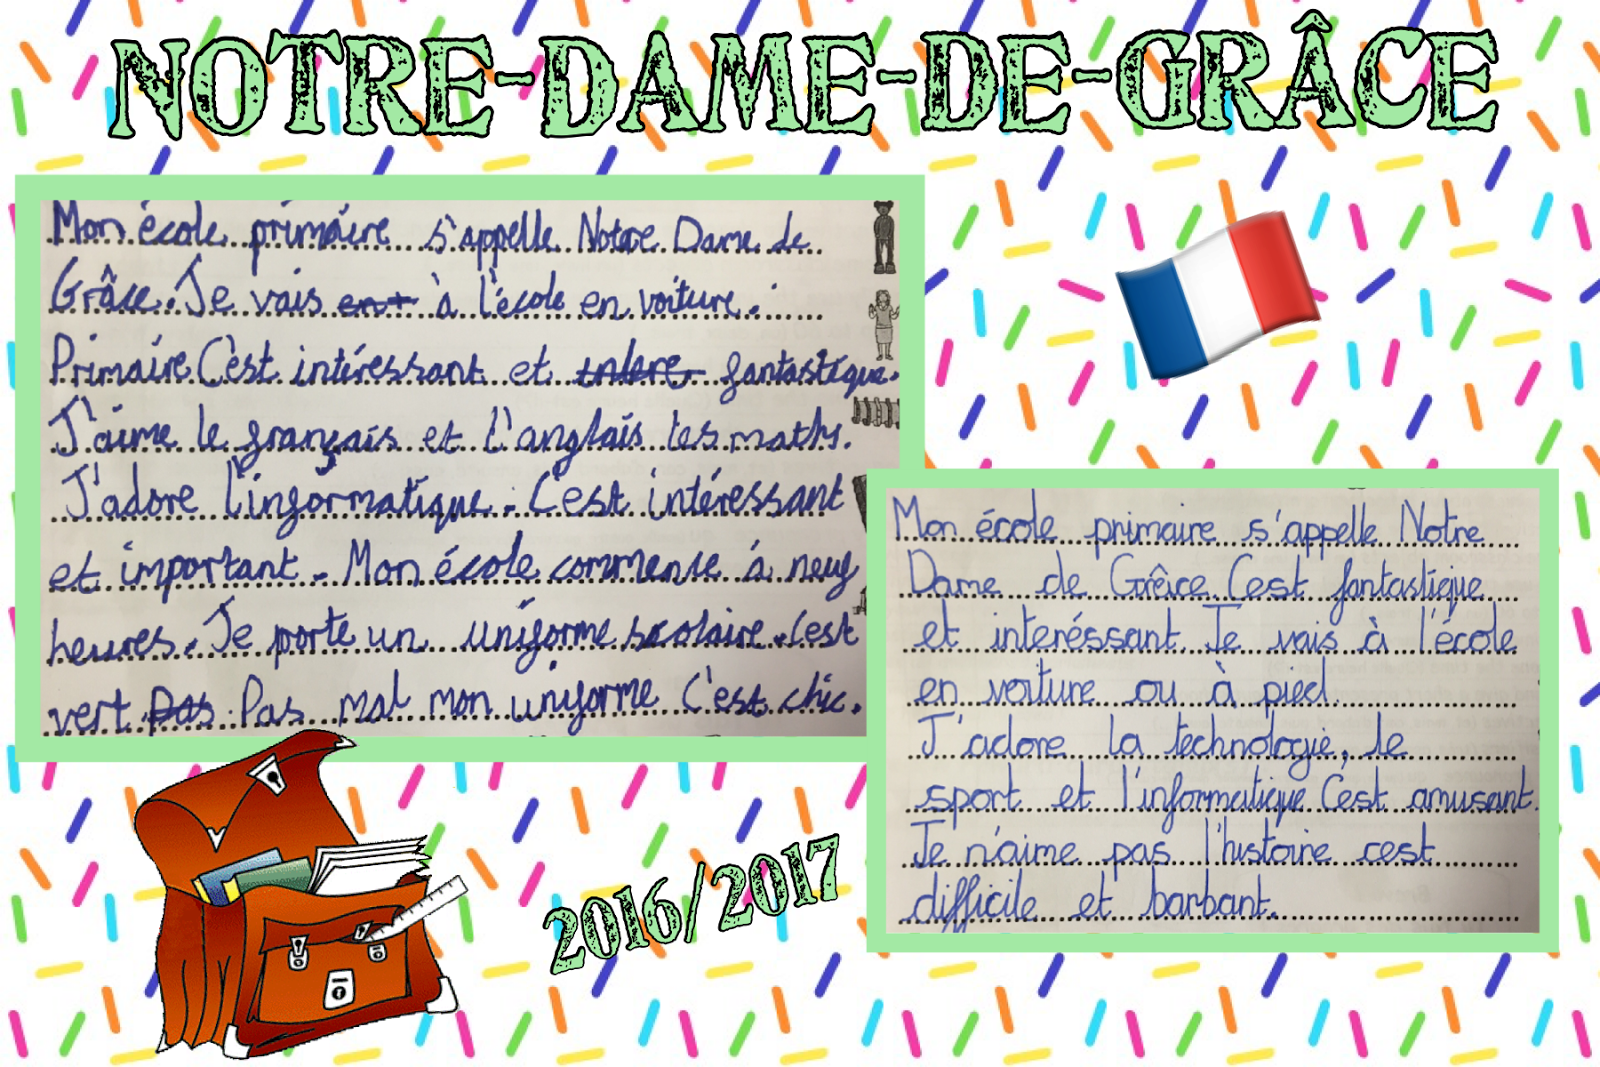 NOTRE-DAME-DE-GRÂCE
Mon école primaire s'appelle Notre Dame de
Grâce. Je vais ent à l'école en voiture.
Primaire C'est intéressant et intere fantastique.
J'aime le français et l'anglais les maths.
J'adore l'informatique. C'est intéressant
et important. Mon école commence à neuf
heures. Je porte un uniforme scolaire. C'est
vert pas Pas mal mon uniforme C'est chic.
Mon école primaire s'appelle Notre
Dame de Grâce. C'est fantastique
et interéssant. Je vais à l'école
en voiture ou à pied.
J'adore la technologie, le
sport et l'informatique C'est amusant
Je n'aime pas l'histoire cest
difficile et barbant.
2016/2017